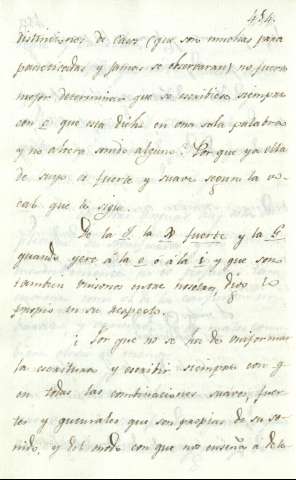 454.
distinciones de casos (que son muchas para
practicadas y jamas se observaran) no fuera
mejor determinar que se escribiese siempre
con c que esta dicho en una sola palabra
y no altera sonido alguno? Por que ya ella
de suyo es fuerte y suave segun la vo-
cal que le sigue.
De la J, la X fuerte y la G
quando yere á la e ó á la i y que son
tambien unisonas entre
propio en su respecto.
¿Por que no se ha de uniformar
la escritura y escribir siempre con g
en todas las combinaciones suaves, fuer-
tes y guturales que son propias de su so-
nido, y del modo con que nos enseña á dele